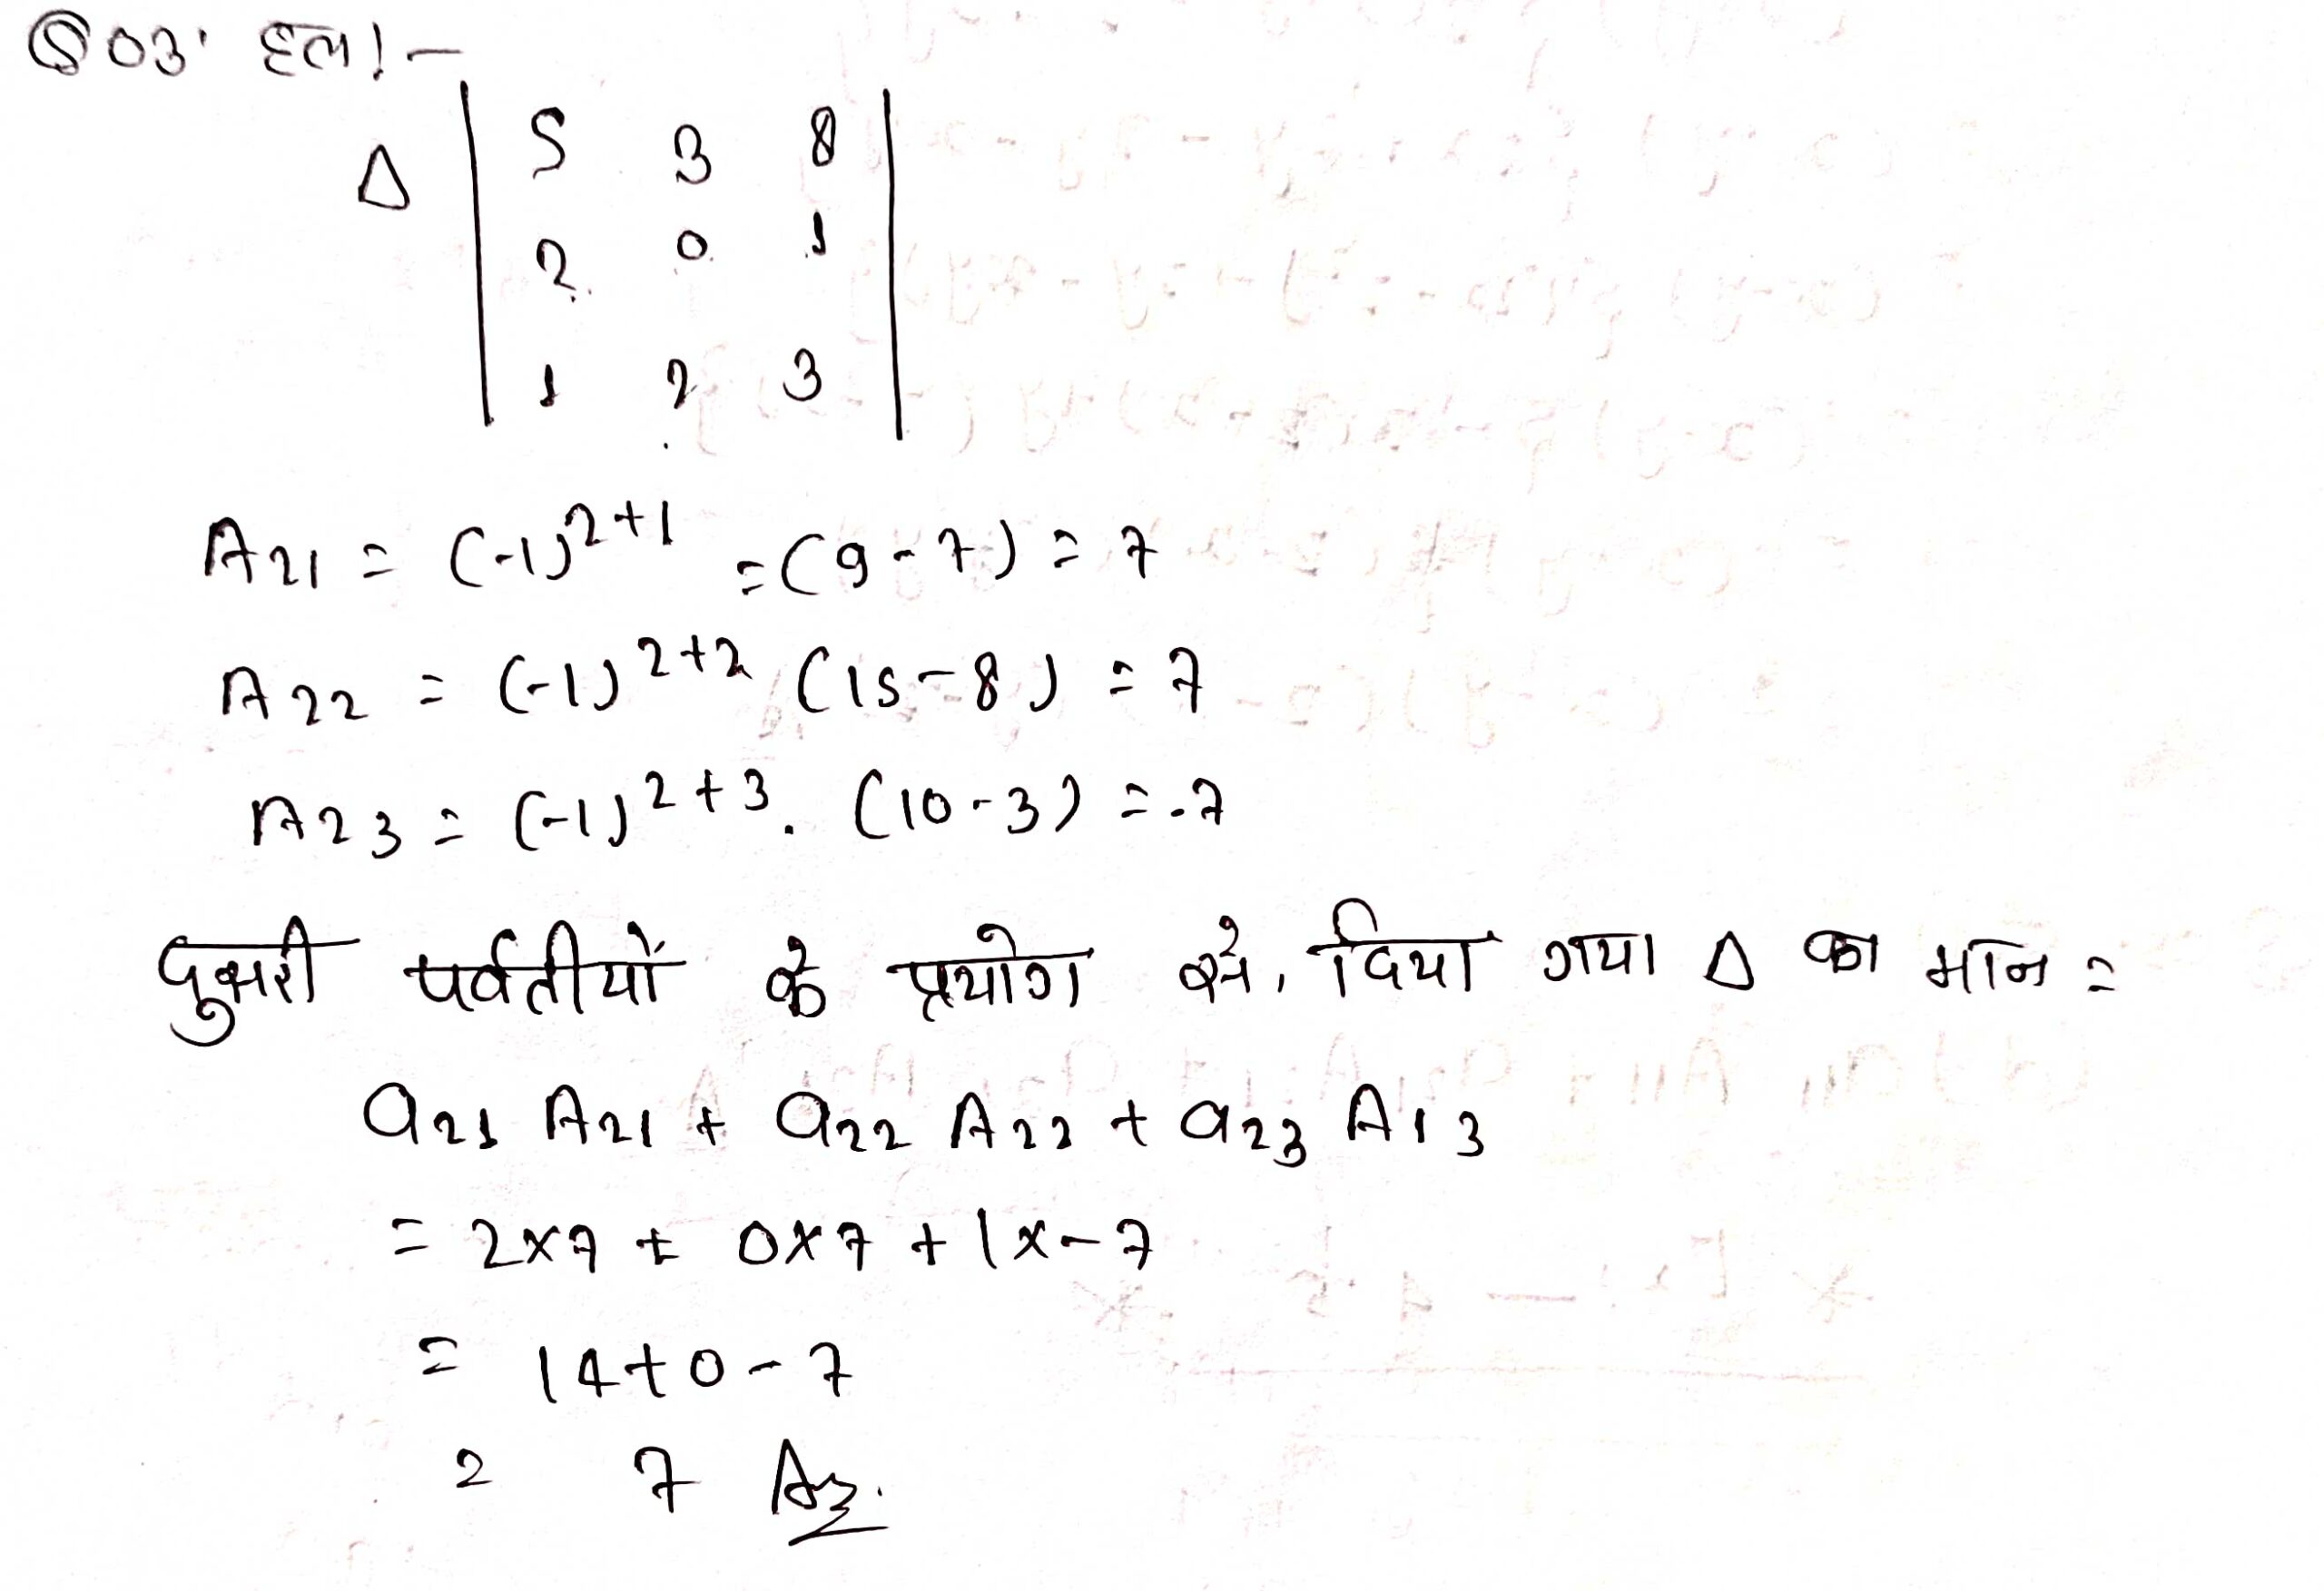 Q03' हल! -
Δ | 5 3 8 |
| 2 0 1 |
| 1 2 3 |
A21 = (-1)^2+1 = (9-7) = 7
A22 = (-1)^2+2 (15-8) = 7
A23 = (-1)^2+3. (10-3) = -7
दुसरी पर्वतीयों के प्रयोग से, दिया गया Δ का मान =
a21 A21 + a22 A22 + a23 A13
= 2x7 + 0x7 + 1x-7
= 14+0-7
= 7 Ans.